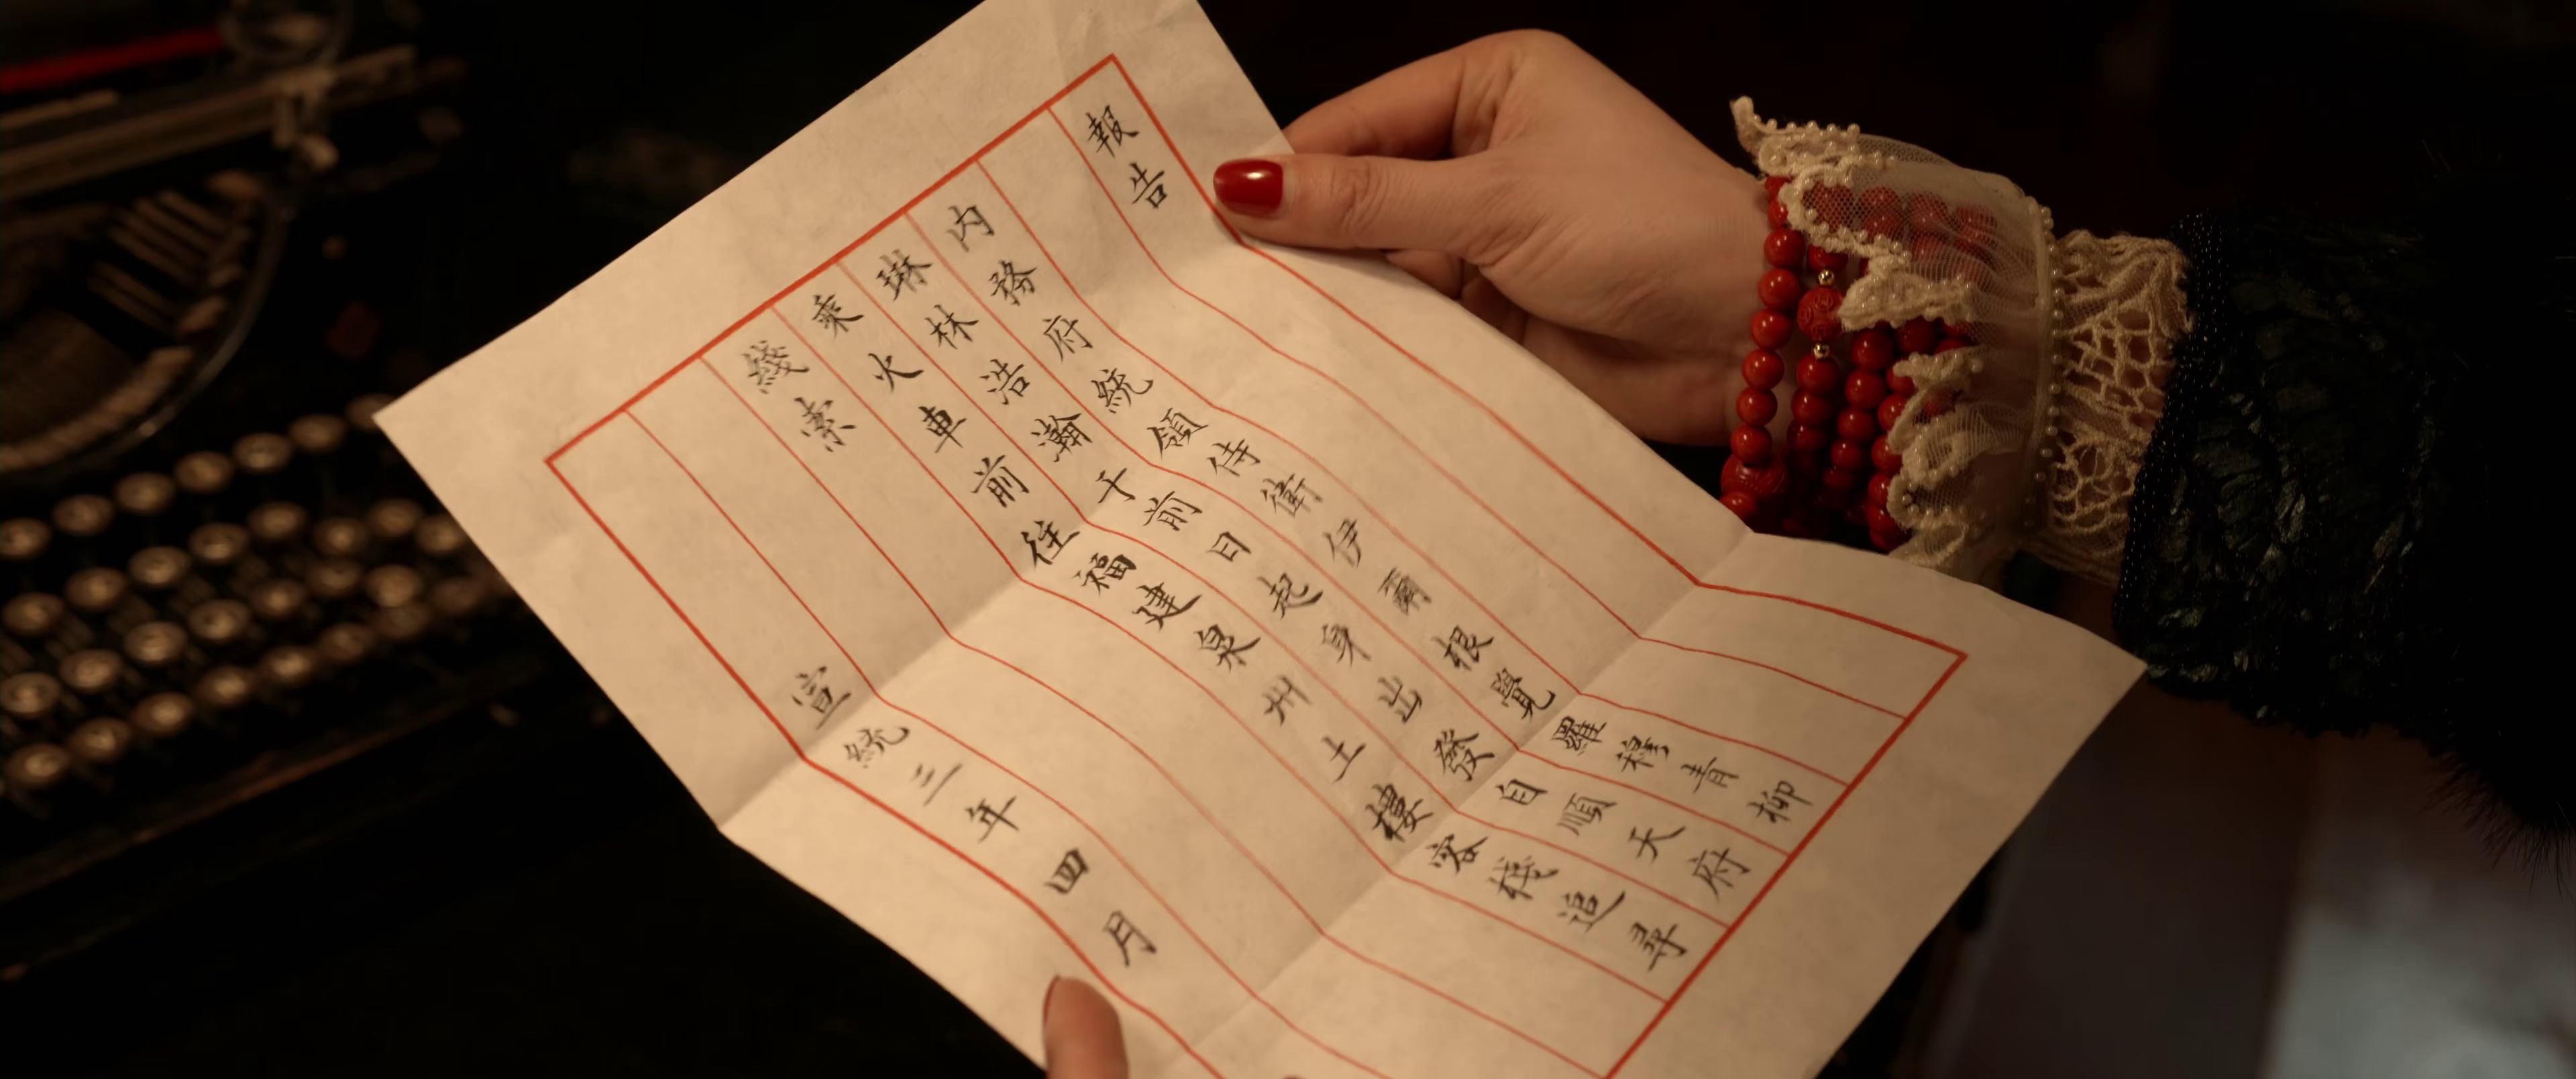 報告
內務府統領侍衛伊爾根覺羅穆青柳
琳林浩瀚于前日起身出發自順天府
乘火車前往福建泉州土樓客棧追尋
綫索
宣統三年四月